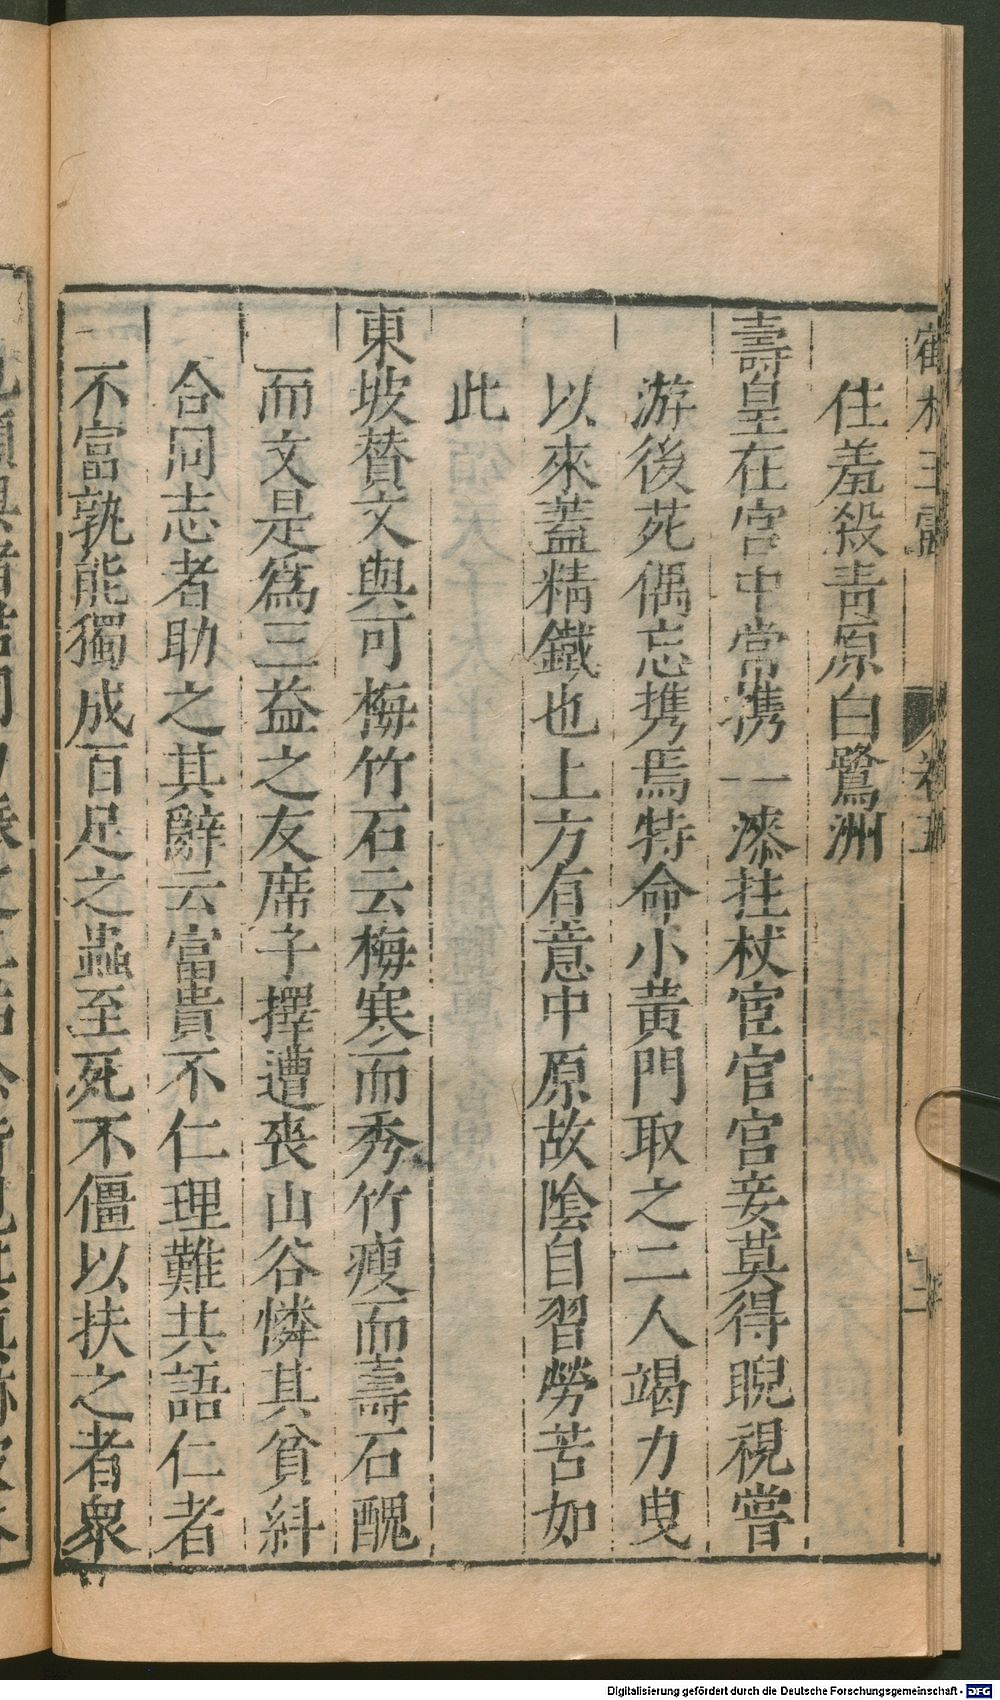 鶴林玉露 卷五
住羞殺青原白鷺洲
壽皇在宮中常攜一漆拄杖宦官宮妾莫得睨視嘗
游後苑偶忘攜焉特命小黃門取之二人竭力曳
以來蓋精鐵也上方有意中原故陰自習勞苦如
此
東坡贊文與可梅竹石云梅寒而秀竹瘦而壽石醜
而文是爲三益之友席子擇遭喪山谷憐其貧糾
合同志者助之其辭云富貴不仁理難共語仁者
不富孰能獨成百足之蟲至死不僵以扶之者衆
Digitalisierung gefördert durch die Deutsche Forschungsgemeinschaft - DFG